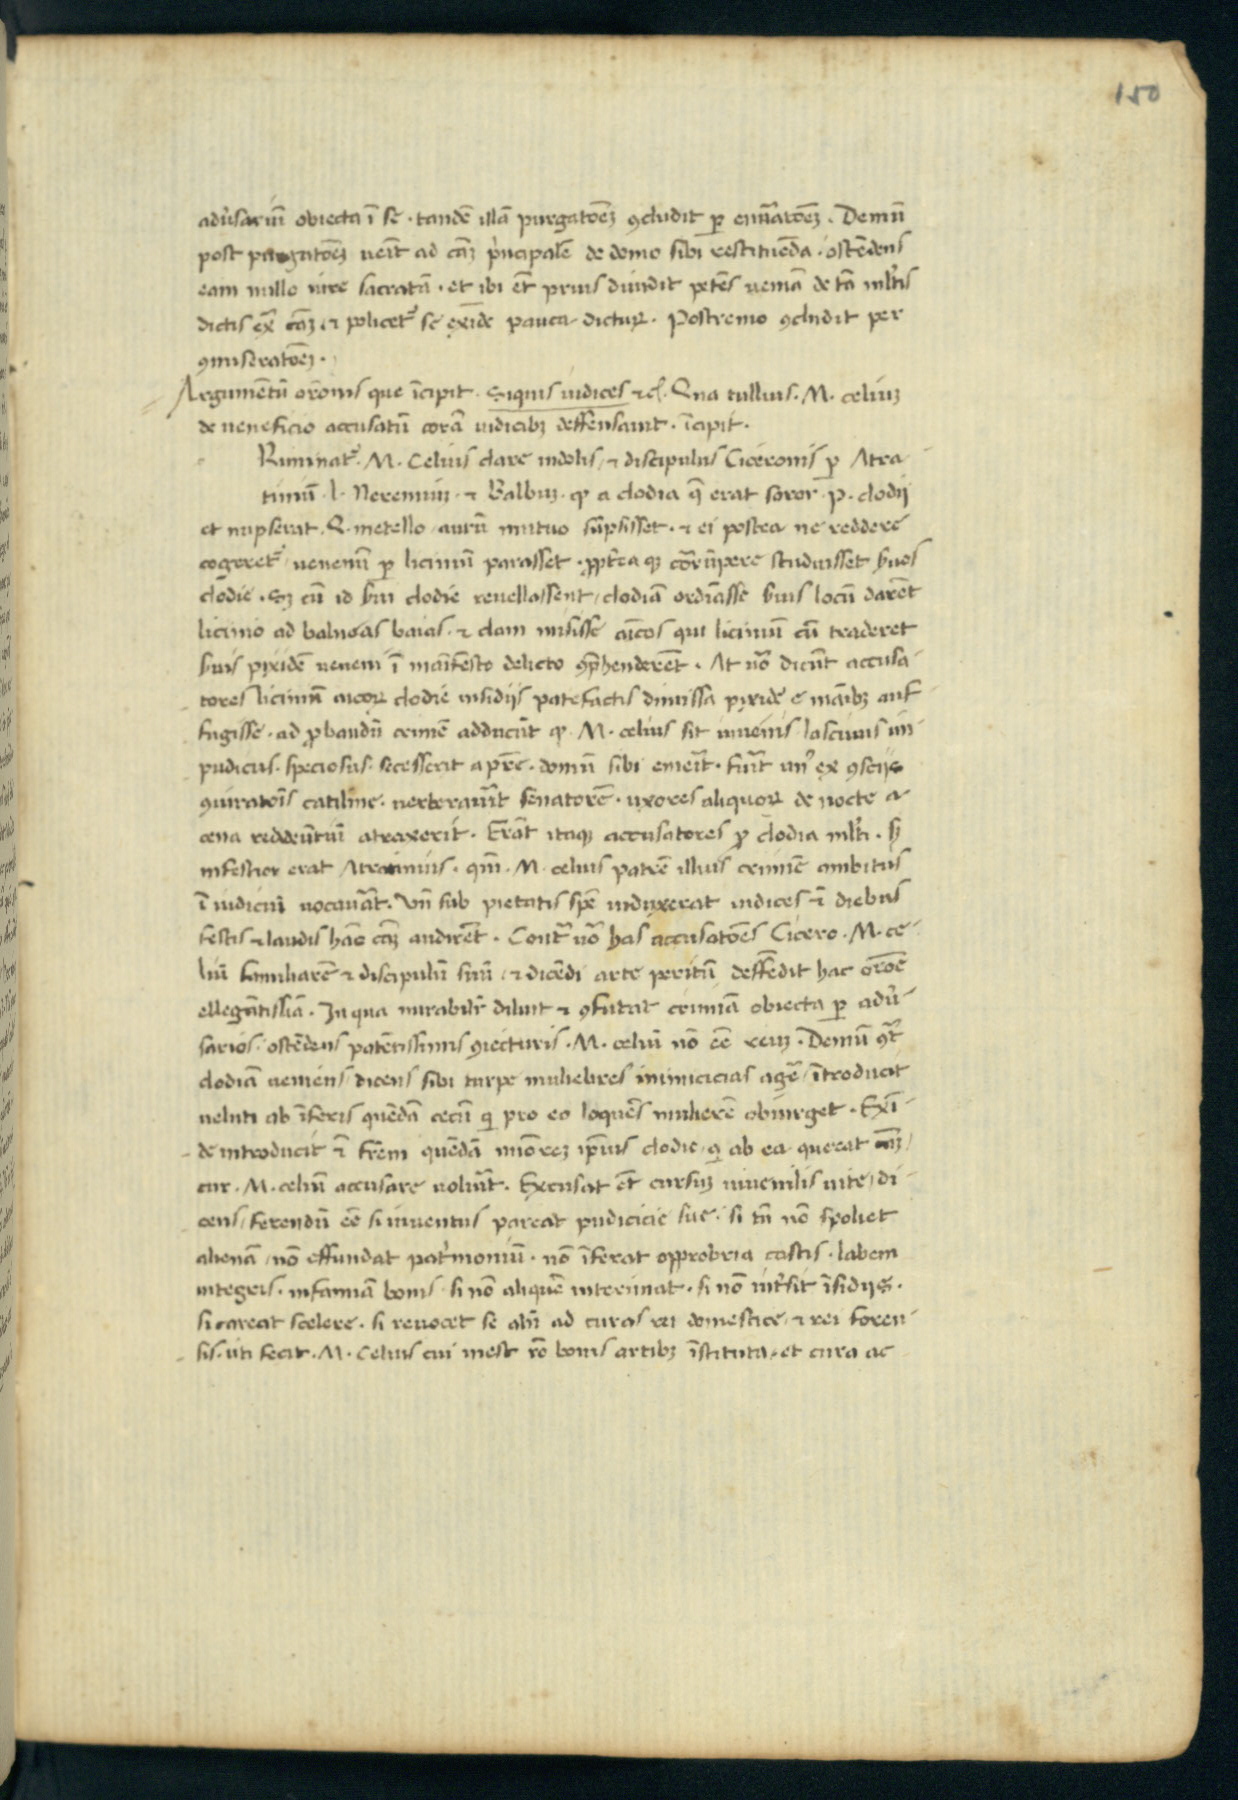 150
adũsariũ obiecta ĩ se · tandẽ illã purgatõeꝫ ꝯcludit ꝑ enũ̃atõeꝫ . Demũ
post purgatõeꝫ ueĩt ad cãꝫ p̃ncipalẽ de domo sibi restituẽda · ostẽdens
eam nullo iure sacratã · et ibi ẽt prius diuidit petẽs ueniã de tã ml̃tis
dictis ex̃ cãꝫ · ⁊ policet᷑ se exĩde pauca dictuꝝ . Postremo ꝯcludit per
ꝯmiseratõeꝫ .
Argumẽtũ orõnis que ĩcipit · Siquis iudices ⁊cͭ. Qua tullius · M. celiuꝫ
de ueneficio accusatũ corã iudicibꝫ deffensauit · ĩcipit .
Riminat᷑ · M. Celius clare indolis · ⁊ discipulus Ciceronis ꝑ Atra
tinũ · l · Neremiuꝫ · ⁊ Balbuꝫ · ꝙ a clodia q̃ erat soror · P. clodij
et nupserat · Q. metello · aurũ mutuo sũpsisset · ⁊ ei postea ne reddere
cogeret᷑ uenenũ ꝑ liciniũ parasset · ꝓpt̃ea qꝫ cõr̃ũpere studuisset s̃uos
clodie · sꝫ cũ id s̃ui clodie reuellassent / clodiã ordĩasse s̃uis locũ darẽt
licinio ad balneas baias · ⁊ clam misisse aĩcos qui liciniũ cũ traderet
s̃uis pixidẽ ueneni ĩ maĩfesto delicto ꝯp̃henderẽt . At uõ dicũt accusa
tores liciniũ aĩcoꝝ clodie insidijs patefactis dimissa pixide e maĩbꝫ auf
fugisse · ad ꝓbandũ crimẽ adducũt ꝙ · M. celius sit iuuenis · lasciuus im
pudicus · speciosus · secesserit a pr̃e · domũ sibi emerĩt · fuĩt un᷒ ex ꝯscijs
ꝯiuratõis catiline · uerberauĩt senatorẽ · uxores aliquoꝝ de nocte a
cena redeũtes atraxerit . Erãt itaqꝫ accusatores ꝓ clodia ml̃ti · sꝫ
infestior erat Atratinus · qm̃ · M. celius patrẽ illius crimĩe ambitus
ĩ iudiciũ uocauãt . Vñ sub pietatis spẽ induxerat iudices ⁊̃ diebus
festis ⁊ laudis hãc cãꝫ audirẽt . Contr̃ uõ has accusatões Cicero · M. ce
liũ familiarẽ ⁊ discipulũ suũ · ⁊ dicẽdi arte peritũ deffẽdit hac orõe
ellegãtissĩa . In qua mirabilr̃ diluit ⁊ ꝯfutat crimĩa obiecta ꝑ adũ
sarios · ostẽdens patẽtissimis ꝯiecturis · M. celiũ nõ eẽ reuꝫ . Demũ ꝯtr̃
clodiã ueniens / dicens sibi turpe muliebres inimicicias agẽ / ĩtroducit
ueluti ab ĩferis quẽdã cecũ qͥ pro eo loquẽs mulierẽ obiurget . Exĩ
de introducit ⁊̃ fr̃em quẽdã miõreꝫ ip̃ius clodie · qͥ ab ea querat cãꝫ
cur · M. celiũ accusare uoluĩt . Excusat ẽt cursuꝫ iuuenilis uite / di
cens / ferendũ eẽ si iuuentus pareat pudicicie sue · si tñ nõ spoliet
alienã / nõ effundat pat̃moniũ · nõ ĩferat opprobria castis · labem
integris · infamiã bonis · si nõ aliquẽ interimat · si nõ int̃sit ĩsidijs ·
si careat scelere · si reuocet se alr̃ ad curas rei domestice · ⁊ rei foren
sis · uti fecit · M. Celius cui inest rõ bonis artibꝫ ĩstituta · et cura ac